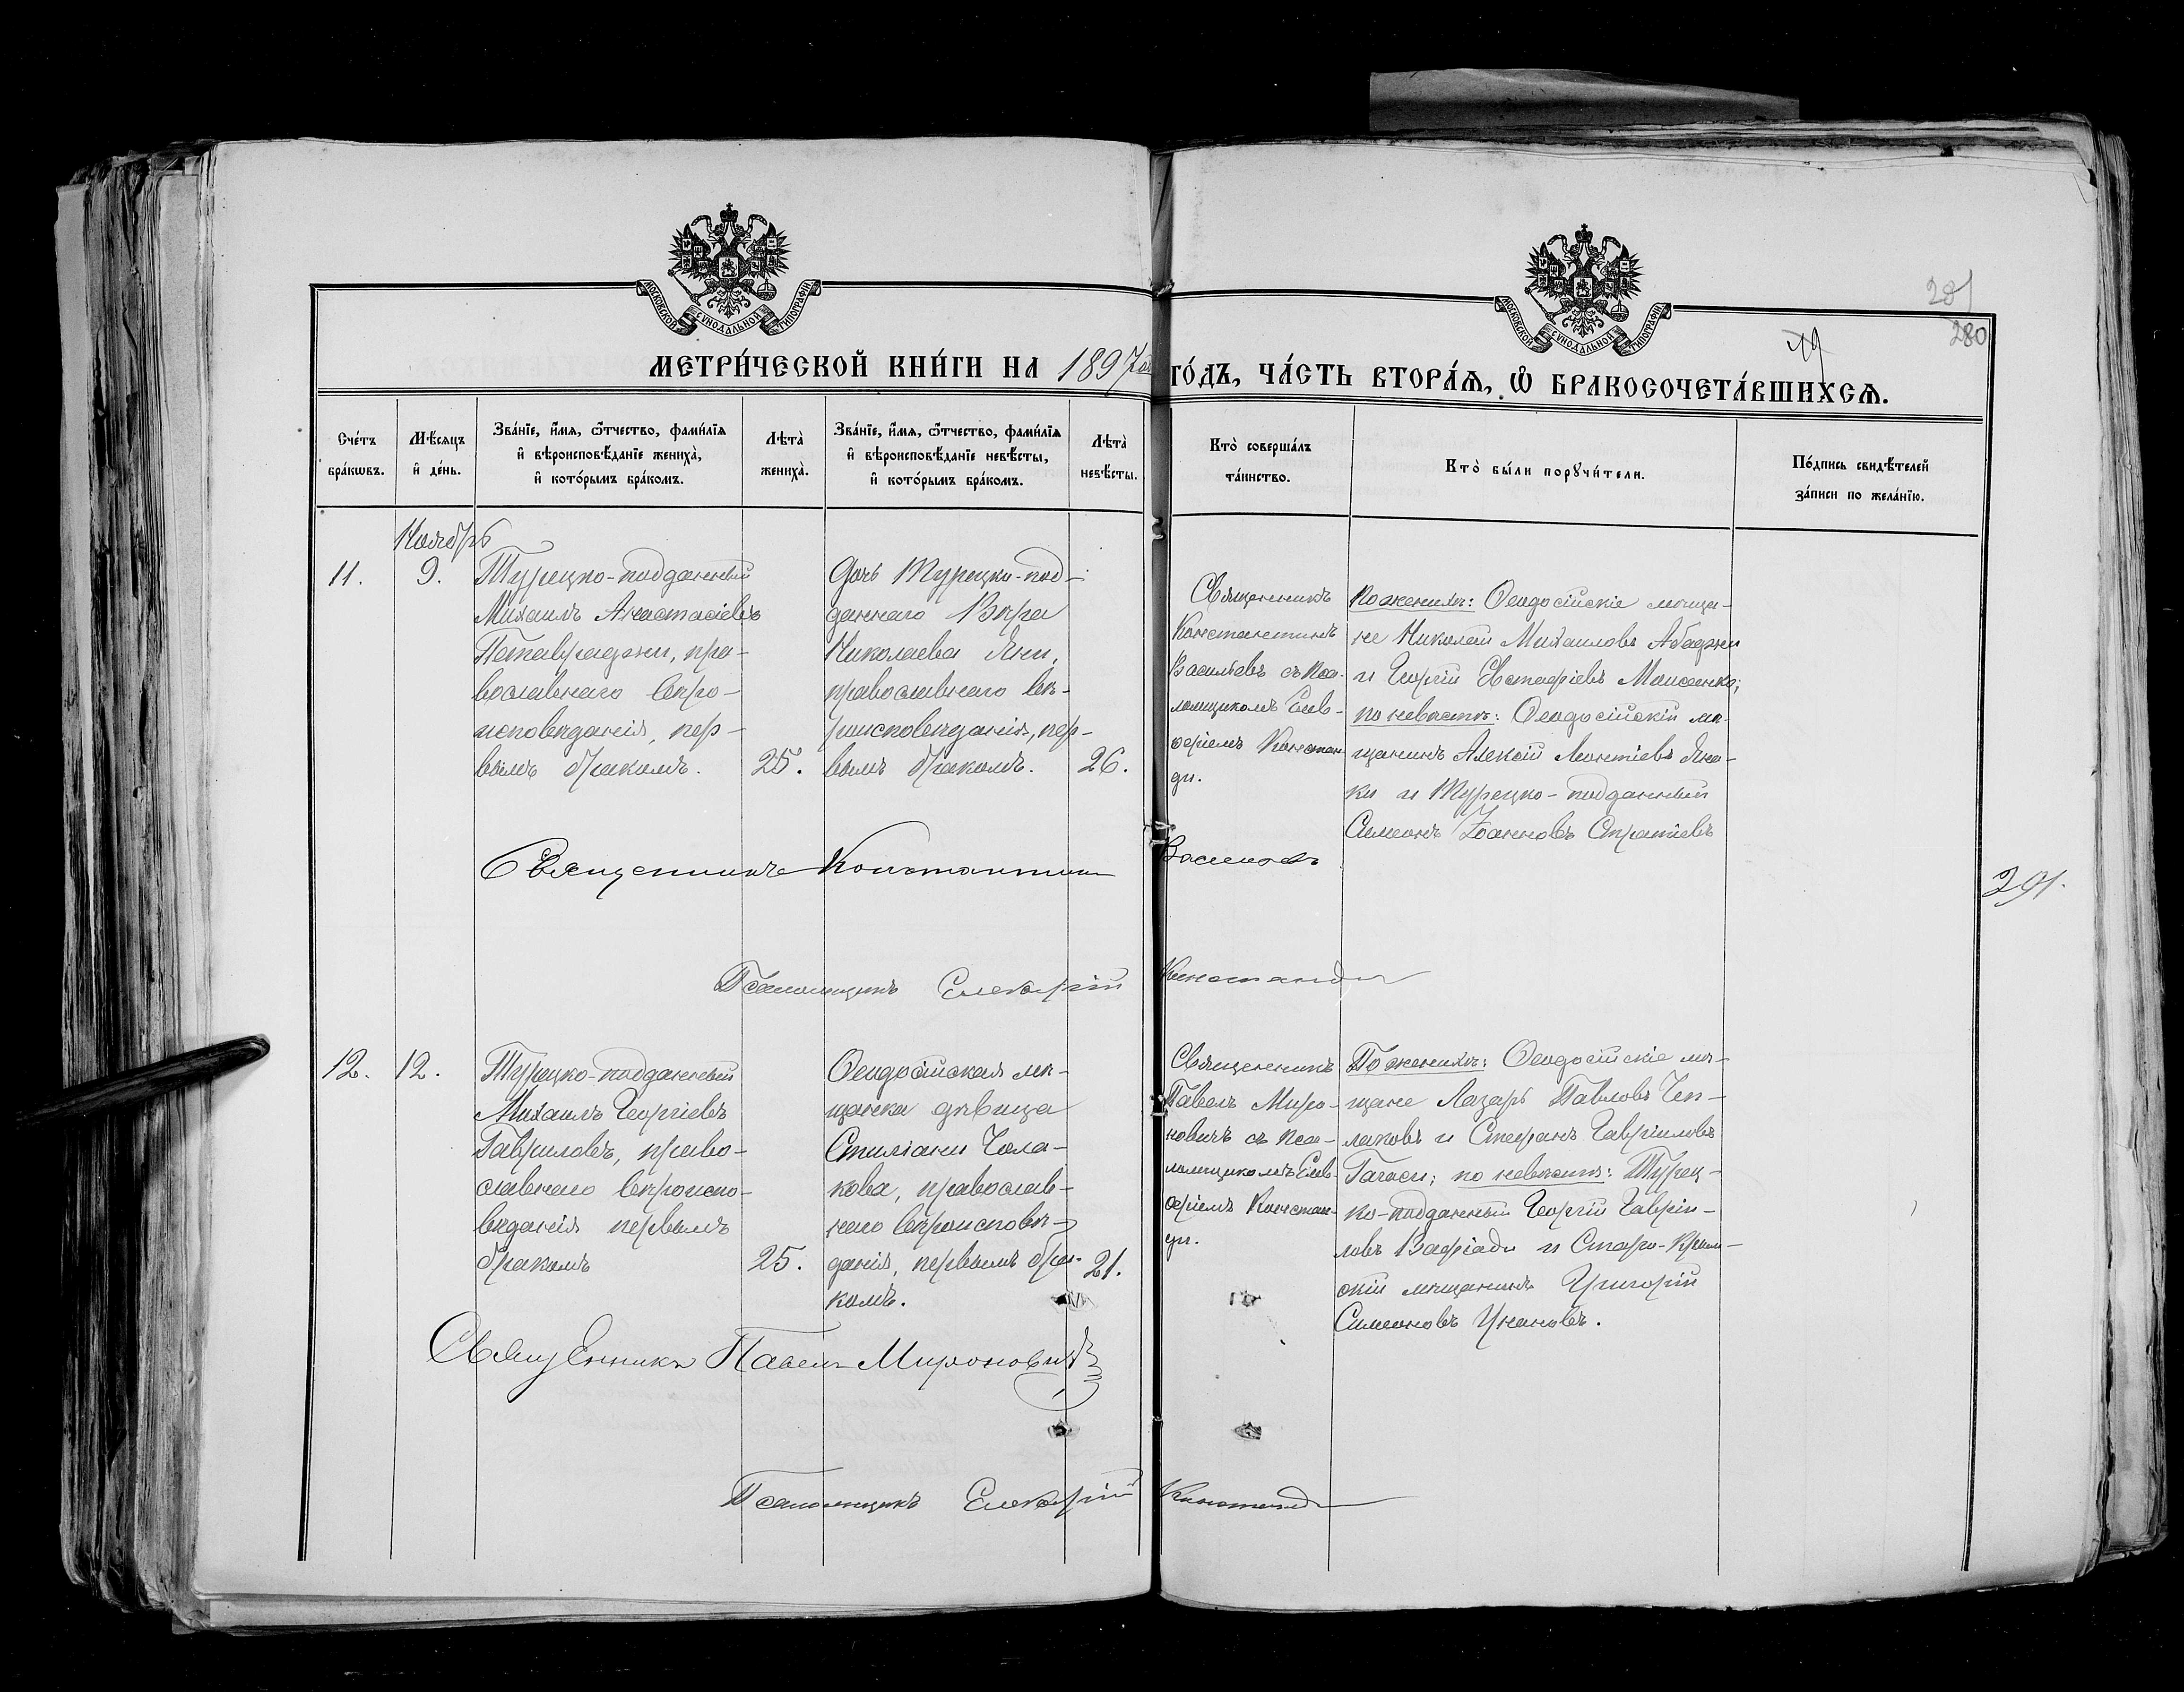 МОСКОВСКОЙ СѴНОДАЛЬНОЙ ТИПОГРАФІИ
МОСКОВСКОЙ СѴНОДАЛЬНОЙ ТИПОГРАФІИ
281
280
МЕТРИ́ЧЕСКОЙ КНИ́ГИ НА 1897 ГО́ДЪ, ЧА́СТЬ ВТОРА́Ѧ, Ѽ БРАКОСОЧЕТА́ВШИХСѦ.
Сче́тъ бра́кѡвъ.
Мѣ́сяцъ и де́нь.
Зва́нїе, и́мѧ, ѻ҆́тчество, фами́лїѧ
и вѣроисповѣ́данїе жениха̀,
и кото́рымъ бра́комъ.
Лѣта̀ жениха̀.
Зва́нїе, и́мѧ, ѻ҆́тчество, фами́лїѧ
и вѣроисповѣ́данїе невѣ́сты,
и кото́рымъ бра́комъ.
Лѣта̀ невѣ́сты.
Кто̀ соверша́лъ та́инство.
Кто̀ бы́ли порꙋчи́тели.
По́дпись свидѣ́телей за́писи по жела́нїю.
Ноябрь
11.
9.
Турецко-подданный
Михаилъ Анастасіевъ
православнаго веро-
исповѣданія, пер-
вымъ бракомъ.
25.
Дочь Турецко-под-
даннаго Вѣра
Николаева Яни,
православнаго вѣ-
роисповѣданія, пер-
вымъ бракомъ.
26.
Священникъ
Константинъ
Васильевъ съ Пса-
ломщикомъ Елев-
феріемъ Констан-
ди.
По женихѣ: Ѳеодосійскіе мѣща-
не Николай Михаиловъ Абаджи
и Георгій Евстафіевъ
по невѣстѣ: Ѳеодосійскій мѣ-
щанинъ Алексій Леонтіевъ Яна-
ки и Турецко-подданный
Симеонъ Іоанновъ Стратіевъ
Священникъ Константинъ Васильевъ
291.
Псаломщикъ Елевферій Константи
12.
12.
Турецко-подданный
Михаилъ Георгіевъ
Гавриловъ, право-
славнаго вѣроиспо-
вѣданія первымъ
бракомъ
25.
Ѳеодосійская мѣ-
щанка дѣвица
Стиліани Чола-
кова, православ-
наго вѣроисповѣ-
данія, первымъ бра-
комъ.
21.
Священникъ
Павелъ Миро-
новичъ съ Пса-
ломщикомъ Елев-
феріемъ Констан-
ди.
По женихѣ: Ѳеодосійскіе мѣ-
щане Лазарь Павловъ Чеп-
лаковъ и Стефанъ Гавріиловъ
по невѣстѣ: Турец-
ко-подданный Георгій Гавріи-
ловъ Вафіади и Старо-Крым-
скій мѣщанинъ Григорій
Симеоновъ Унановъ.
Священникъ Павелъ Мироновичъ
Псаломщикъ Елевферій Константи